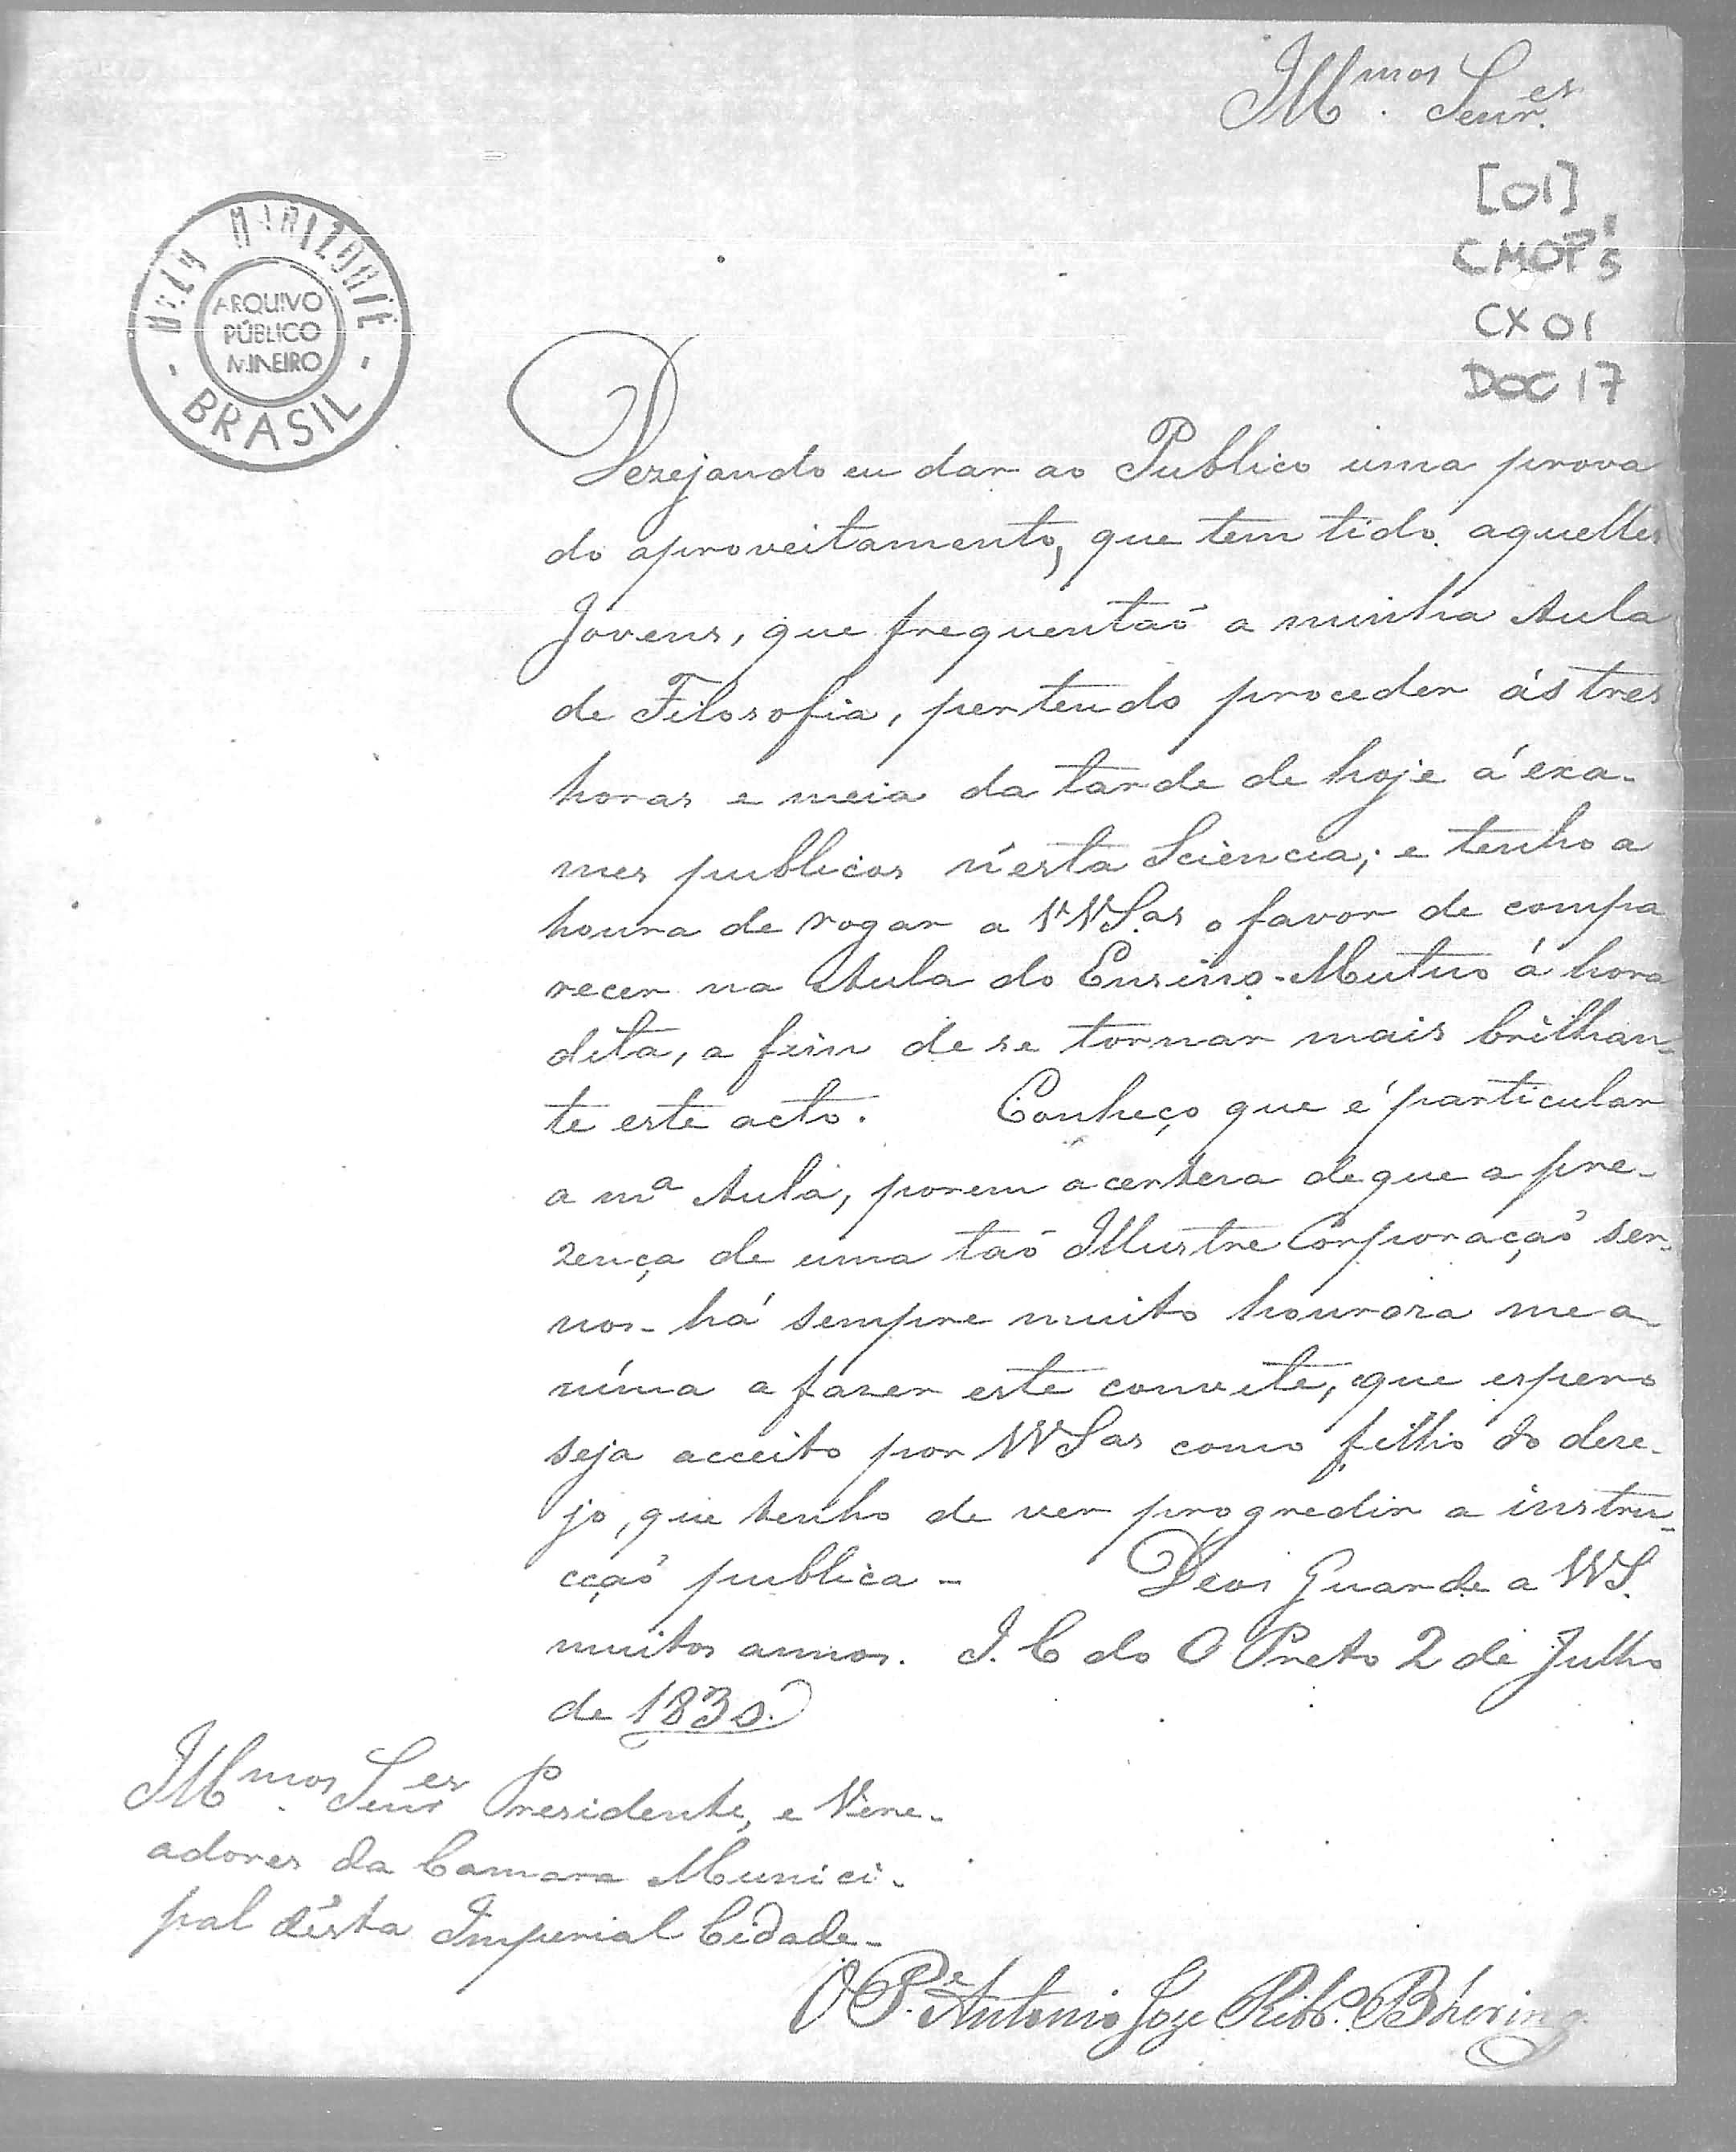 Illmos. Senres.
[01]
CMOP 5
CX 01
DOC 17
BELO HORIZONTE
ARQUIVO
PÚBLICO
MINEIRO
BRASIL
Dezejando eu dar ao Publico uma prova
do aproveitamento, que tem tido aquelles
Jovens, que frequentaõ a minha Aula
de Filosofia, pertendo proceder ás tres
horas e meia da tarde de hoje á exa-
mes publicos n'esta Sciencia; e tenho a
honra de rogar a VVSas o favor de compa
recer na Aula do Ensino-Mutuo á hora
dita, a fim de se tornar mais brilhan-
te este acto. Conheço que é particular
a ma Aula, porem a certeza de que a pre-
zença de uma taõ Illustre Corporaçaõ ser-
nos-há sempre muito honroza me a-
níma a fazer este convite, que espero
seja acceito por VVSas como filho do deze-
jo, que tenho de ver progredir a instru-
cçaõ publica - Deos Guarde a VVS.
muitos annos. I. C do O Preto 2 de Julho
de 1830.
Illmos. Senres Presidente, e Vere-
adores da Camara Munici-
pal désta Imperial Cidade-
O Pe. Antonio Joze Ribro. Bhering.